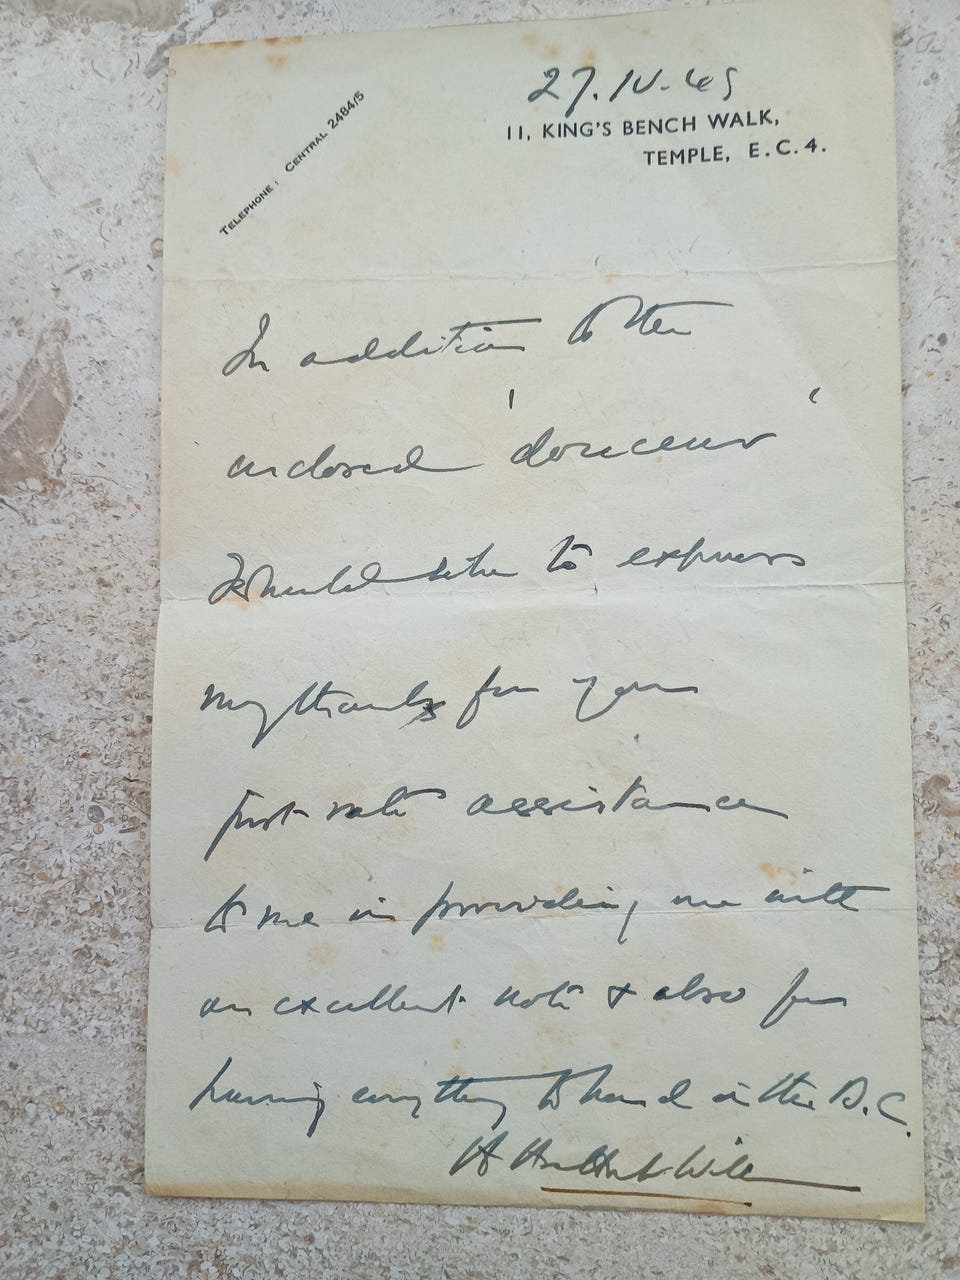 27.IV.49
11, KING'S BENCH WALK,
TEMPLE, E.C.4.
TELEPHONE: CENTRAL 2484/5
In addition to the
enclosed 'douceur'
I should like to express
my thanks for your
first rate assistance
to me in providing me with
an excellent note & also for
having everything to hand in the D.C.
H